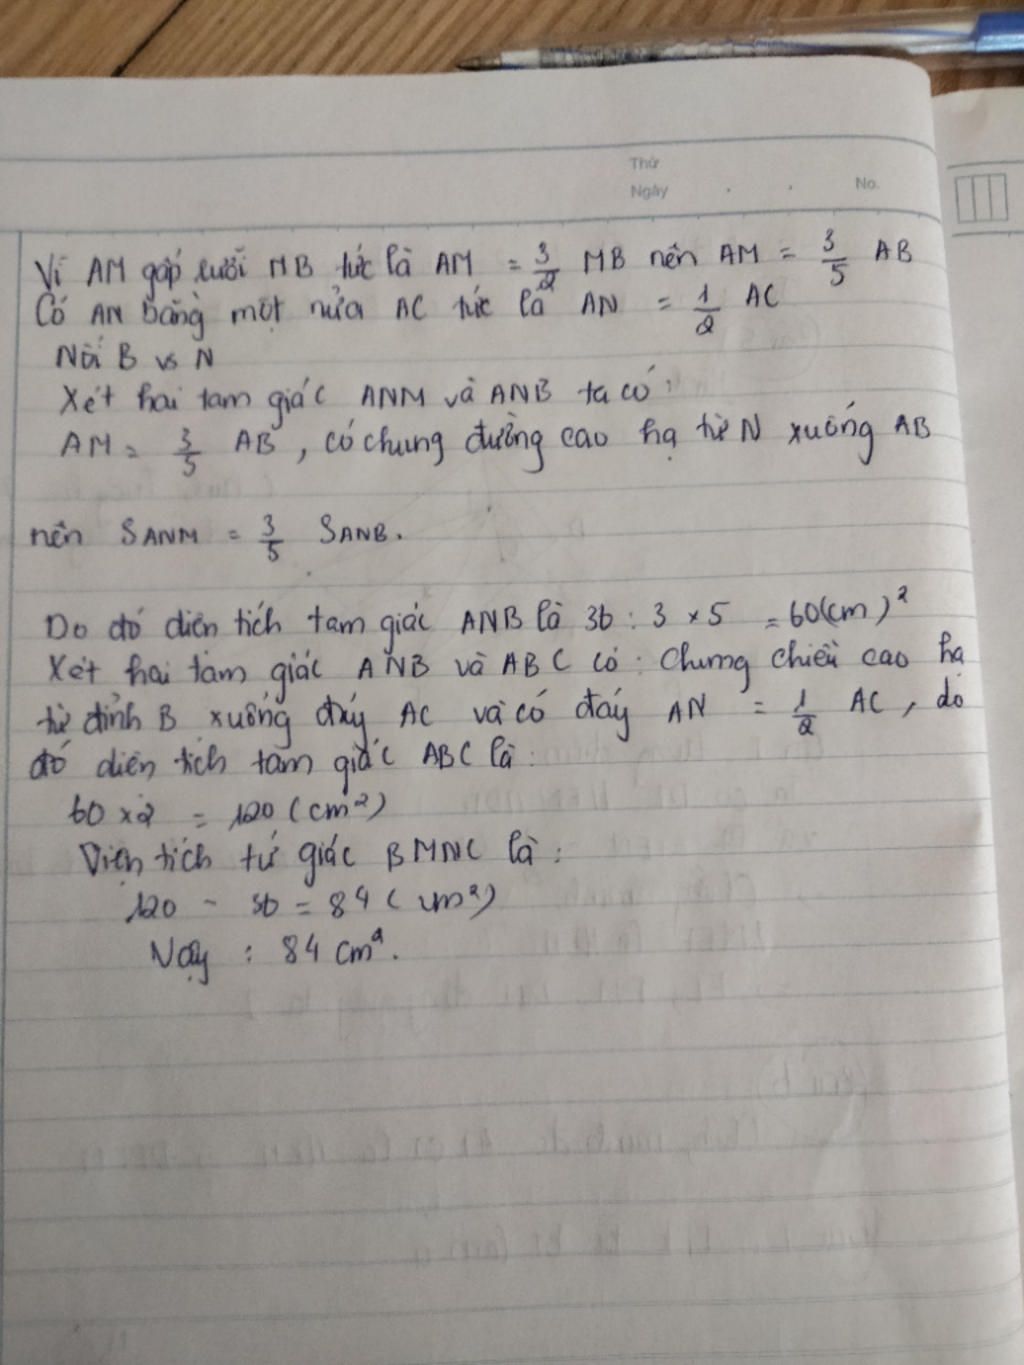 Thứ
Ngày . . No.
Vì AM gấp rưỡi MB tức là AM = 3/2 MB nên AM = 3/5 AB
Có AN bằng một nửa AC tức là AN = 1/2 AC
Nối B vs N
Xét hai tam giác ANM và ANB ta có:
AM = 3/5 AB, có chung đường cao hạ từ N xuống AB
nên SANM = 3/5 SANB.
Do đó diện tích tam giác ANB là 36 : 3 x 5 = 60(cm)²
Xét hai tam giác ANB và ABC có: Chung chiều cao hạ
từ đỉnh B xuống đáy AC và có đáy AN = 1/2 AC, do
đó diện tích tam giác ABC là:
60 x 2 = 120 (cm²)
Diện tích tứ giác BMNC là:
120 - 36 = 84 (cm²)
Vậy: 84 cm².